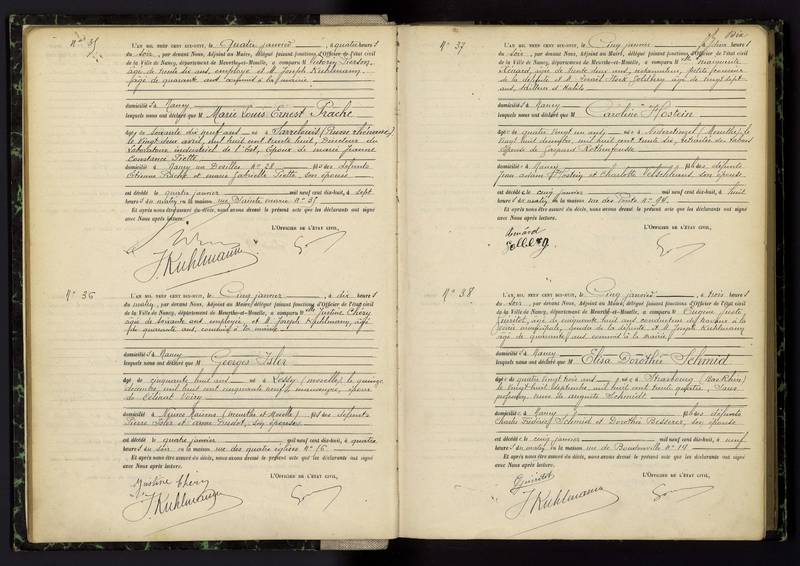 N° 35
L'AN MIL NEUF CENT DIX-HUIT, le Quatre janvier, à quatre heures
du soir, par devant Nous, Adjoint au Maire, délégué faisant fonctions d'Officier de l'état civil
de la Ville de Nancy, département de Meurthe-et-Moselle, a comparu M Victorin Pierson,
âgé de trente six ans, employé et M. Joseph Kuhlmann,
âgé de quarante ans commis à la mairie
domiciliés à Nancy
lesquels nous ont déclaré que M Marie Louis Ernest Prache
âgé de soixante dix neuf ans né à Sarrelouis (Prusse rhénane),
le vingt deux avril mil huit cent trente huit, Directeur du
Laboratoire industriel de l'Est, époux de Marie Jeanne
Constance Piette
domicilié à Nancy fils de défunts
Etienne Prache et Marie Gabrielle Piette son épouse
est décédé le quatre janvier mil neuf cent dix-huit, à sept
heures du matin en la maison rue Sainte Marie N° 35
Et après nous être assuré du décès, nous avons dressé le présent acte que les déclarants ont signé
avec Nous après lecture.
L'OFFICIER DE L'ÉTAT CIVIL,
J. Kuhlmann
N° 36
L'AN MIL NEUF CENT DIX-HUIT, le Cinq janvier, à dix heures
du matin, par devant Nous, Adjoint au Maire, délégué faisant fonctions d'Officier de l'état civil
de la Ville de Nancy, département de Meurthe-et-Moselle, a comparu M Justine Chéry
âgée de soixante ans employée, et M. Joseph Kuhlmann, âgé
de quarante ans, commis à la mairie
domiciliés à Nancy
lesquels nous ont déclaré que M Georges Isler
âgé de cinquante huit ans né à Lessy (Moselle) le quinze
décembre, mil huit cent cinquante neuf, époux
de Célinat Voiry
domicilié à fils de défunts
Pierre Isler et Anne son épouse
est décédé le quatre janvier mil neuf cent dix-huit, à quatre
heures du soir en la maison rue des quatre églises N° 76
Et après nous être assuré du décès, nous avons dressé le présent acte que les déclarants ont signé
avec Nous après lecture.
L'OFFICIER DE L'ÉTAT CIVIL,
Justine Chéry
J. Kuhlmann
Dix
N° 37
L'AN MIL NEUF CENT DIX-HUIT, le Cinq janvier, à deux heures
du soir, par devant Nous, Adjoint au Maire, délégué faisant fonctions d'Officier de l'état civil
de la Ville de Nancy, département de Meurthe-et-Moselle, a comparu M Marguerite
âgée de trente deux ans,
de la défunte et M. Goldberg âgé de vingt sept
ans,
domiciliés à Nancy
lesquels nous ont déclaré que M Caroline Hostein
âgée de quatre vingt un ans, née à Niderstinzel (Meurthe), le
vingt huit mil huit cent trente six, retraitée des tabacs
Veuve de Jacques Rothenfousse
domiciliée à Nancy fille de défunts
Jean Adam Hostein et Charlotte son épouse
est décédée le cinq janvier mil neuf cent dix-huit, à huit
heures du matin en la maison rue des Ponts N° 94
Et après nous être assuré du décès, nous avons dressé le présent acte que les déclarants ont signé
avec Nous après lecture.
L'OFFICIER DE L'ÉTAT CIVIL,
N° 38
L'AN MIL NEUF CENT DIX-HUIT, le Cinq janvier, à trois heures
du soir, par devant Nous, Adjoint au Maire, délégué faisant fonctions d'Officier de l'état civil
de la Ville de Nancy, département de Meurthe-et-Moselle, a comparu M Eugène Juste
Guirdot, âgé de cinquante huit ans conducteur de travaux à la
voirie municipale, gendre de la défunte et M. Joseph Kuhlmann
âgé de quarante ans commis à la mairie
domiciliés à Nancy
lesquels nous ont déclaré que M Elisa Dorothée Schmid
âgée de quatre vingt trois ans, née à Strasbourg (Bas Rhin)
le vingt huit mil huit cent trente quatre, Sans
profession, veuve de Auguste Schmidt
domiciliée à Nancy fille de défunts
Charles Frédéric Schmid et Dorothée Besserer, son épouse
est décédée le cinq janvier mil neuf cent dix-huit, à neuf
heures du matin en la maison rue de Boudonville N° 19
Et après nous être assuré du décès, nous avons dressé le présent acte que les déclarants ont signé
avec Nous après lecture.
L'OFFICIER DE L'ÉTAT CIVIL,
J. Kuhlmann